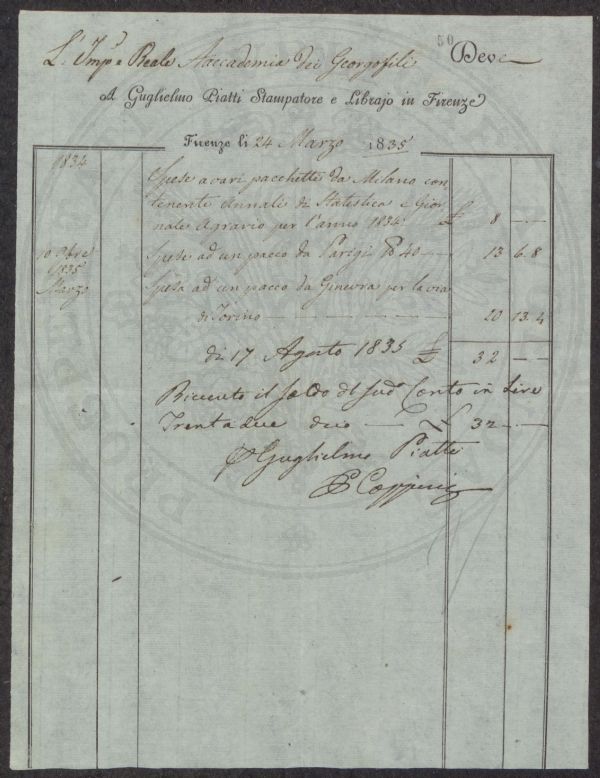 50
L'Imp. e Reale Accademia dei Georgofili Deve
A Guglielmo Piatti Stampatore e Librajo in Firenze
Firenze li 24 Marzo 1835
1834
Spese a vari pacchetti da Milano con
tenente Annali di Statistica e Gior
nale Agrario per l'anno 1834 £ 8 — —
10 Xbre Spese ad un pacco da Parigi 40 — 13 6.8
1835
Marzo Spesa ad un pacco da Ginevra per la via
di Torino — 20 13.4
di 17 Agosto 1835 £ 32 — —
Ricevuto il Saldo di Sud.o Conto in Lire
Trentadue dico — £ 32 — —
Guglielmo Piatti